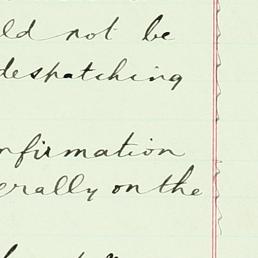 ld not be
despatching
nfirmation
erally on the